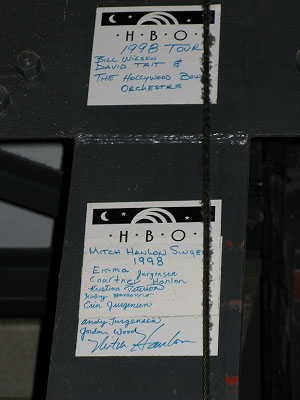 · H · B · O ·
1998 TOUR
BILL WILSON
DAVID TAIT &
THE HOLLYWOOD BOWL
ORCHESTRA
· H · B · O ·
MITCH HANLON SINGERS
1998
Emma Jurgensen
Courtney Hanlon
Kristina
Erin Jurgensen
Andy Jurgensen
Jordan Wood
Mitch Hanlon